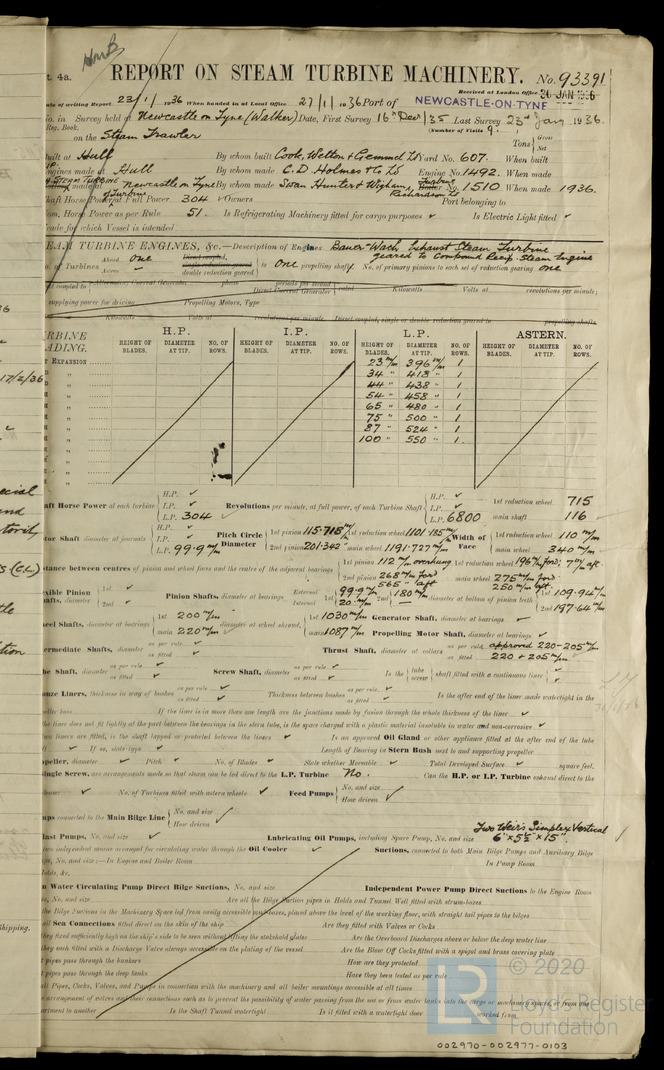 HmB
t. 4a.
REPORT ON STEAM TURBINE MACHINERY. No. 93391
Received at London Office 30 JAN 1936
ate of writing Report 23/1/1936 When handed in at Local Office 27/1/1936 Port of NEWCASTLE-ON-TYNE
No. in Survey held at Newcastle on Tyne (Walker) Date, First Survey 16th Decr/35 Last Survey 23rd Jany 1936.
Reg. Book. (Number of Visits 9.)
on the Steam Trawler Tons Gross Net
Built at Hull By whom built Cook, Welton & Gemmel Ld Yard No. 607. When built
Engines made at Hull By whom made C. D. Holmes & Co Ld Engine No. 1492. When made
STEAM TURBINE made at Newcastle on Tyne By whom made Swan Hunter & Wigham Richardson Ld Turbine No. 1510 When made 1936.
Shaft Horse Power at Full Power 304 Owners Port belonging to
Nom. Horse Power as per Rule 51. Is Refrigerating Machinery fitted for cargo purposes Is Electric Light fitted
Trade for which Vessel is intended
STEAM TURBINE ENGINES, &c.—Description of Engines Bauer-Wach Exhaust Steam Turbine
geared to Compound Recip. Steam Engine
No. of Turbines Ahead one Astern Direct coupled, single reduction geared double reduction geared to One propelling shaft. No. of primary pinions to each set of reduction gearing one
direct coupled to Alternating Current Generator phase periods per second Direct Current Generator rated Kilowatts Volts at revolutions per minute;
supplying power for driving Propelling Motors, Type
Kilowatts Volts at revolutions per minute. Direct coupled, single or double reduction geared to propelling shafts.
TURBINE BLADING. H.P. I.P. L.P. ASTERN.
HEIGHT OF BLADES. DIAMETER AT TIP. NO. OF ROWS. HEIGHT OF BLADES. DIAMETER AT TIP. NO. OF ROWS. HEIGHT OF BLADES. DIAMETER AT TIP. NO. OF ROWS. HEIGHT OF BLADES. DIAMETER AT TIP. NO. OF ROWS.
EXPANSION 23 m/m 396 m/m 1
34 " 413 " 1
44 " 438 " 1
54 " 458 " 1
65 " 480 " 1
75 " 500 " 1
87 " 524 " 1
100 " 550 " 1.
Shaft Horse Power at each turbine H.P. I.P. L.P. 304 Revolutions per minute, at full power, of each Turbine Shaft H.P. I.P. L.P. 6800 1st reduction wheel 715 main shaft 116
Rotor Shaft diameter at journals H.P. I.P. L.P. 99.9 m/m Pitch Circle Diameter 1st pinion 115.718 m/m 1st reduction wheel 1101.135 m/m 2nd pinion 201.342 main wheel 1191.727 m/m Width of Face 1st reduction wheel 110 m/m main wheel 340 m/m
Distance between centres of pinion and wheel faces and the centre of the adjacent bearings 1st pinion 112 m/m overhung 1st reduction wheel 196 m/m ford;
2nd pinion 268 m/m ford 565 " aft main wheel 275 m/m ford 250 m/m aft
Flexible Pinion Shafts, diameter 1st 2nd Pinion Shafts, diameter at bearings External 99.9 m/m Internal 20 m/m 1st 2nd 180 m/m diameter at bottom of pinion teeth 1st 109.94 m/m 2nd 197.64 m/m
Wheel Shafts, diameter at bearings 1st 200 m/m main 220 m/m diameter at wheel shroud, 1st 1030 m/m main 1087 m/m Generator Shaft, diameter at bearings
Propelling Motor Shaft, diameter at bearings
Intermediate Shafts, diameter as per rule as fitted Thrust Shaft, diameter at collars as per rule approved 220-205 m/m as fitted 220 & 205 m/m
Tube Shaft, diameter as per rule as fitted Screw Shaft, diameter as per rule as fitted Is the tube screw shaft fitted with a continuous liner
Bronze Liners, thickness in way of bushes as per rule as fitted Thickness between bushes as per rule as fitted Is the after end of the liner made watertight in the
peller boss If the liner is in more than one length are the junctions made by fusion through the whole thickness of the liner
the liner does not fit tightly at the part between the bearings in the stern tube, is the space charged with a plastic material insoluble in water and non-corrosive
two liners are fitted, is the shaft lapped or protected between the liners Is an approved Oil Gland or other appliance fitted at the after end of the tube
If so, state type Length of Bearing in Stern Bush next to and supporting propeller
Propeller, diameter Pitch No. of Blades State whether Moveable Total Developed Surface square feet.
Single Screw, are arrangements made so that steam can be led direct to the L.P. Turbine No. Can the H.P. or I.P. Turbine exhaust direct to the
No. of Turbines fitted with astern wheels Feed Pumps No. and size How driven
Pumps connected to the Main Bilge Line No. and size How driven
Two Weir's Simplex Vertical
Ballast Pumps, No. and size Lubricating Oil Pumps, including Spare Pump, No. and size 6" × 5½" × 15".
two independent means arranged for circulating water through the Oil Cooler Suctions, connected to both Main Bilge Pumps and Auxiliary Bilge
Pumps, No. and size:—In Engine and Boiler Room In Pump Room
Holds, &c.
Main Water Circulating Pump Direct Bilge Suctions, No. and size Independent Power Pump Direct Suctions to the Engine Room
No. and size Are all the Bilge Suction pipes in Holds and Tunnel Well fitted with strum-boxes
the Bilge Suctions in the Machinery Space led from easily accessible mud-boxes, placed above the level of the working floor, with straight tail pipes to the bilges
all Sea Connections fitted direct on the skin of the ship Are they fitted with Valves or Cocks
they fixed sufficiently high on the ship's side to be seen without lifting the stokehold plates Are the Overboard Discharges above or below the deep water line
they each fitted with a Discharge Valve always accessible on the plating of the vessel Are the Blow Off Cocks fitted with a spigot and brass covering plate
pipes pass through the bunkers How are they protected
pipes pass through the deep tanks Have they been tested as per rule
all Pipes, Cocks, Valves, and Pumps in connection with the machinery and all boiler mountings accessible at all times
arrangement of valves and their connections such as to prevent the possibility of water passing from the sea or from water tanks into the cargo or machinery spaces, or from one
compartment to another Is the Shaft Tunnel watertight Is it fitted with a watertight door worked from
LR © 2020
Lloyd's Register
Foundation
002970-002977-0103
17/2/36
Shipping.